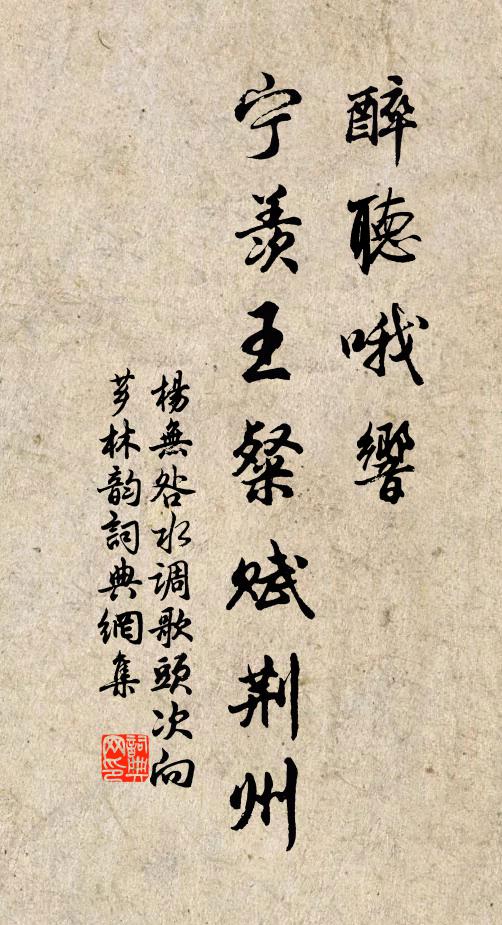 醉聽哦響
宁羨王粲赋荆州
楊無咎水调歌頭次向
芗林韵詞典網集
詞典
网印